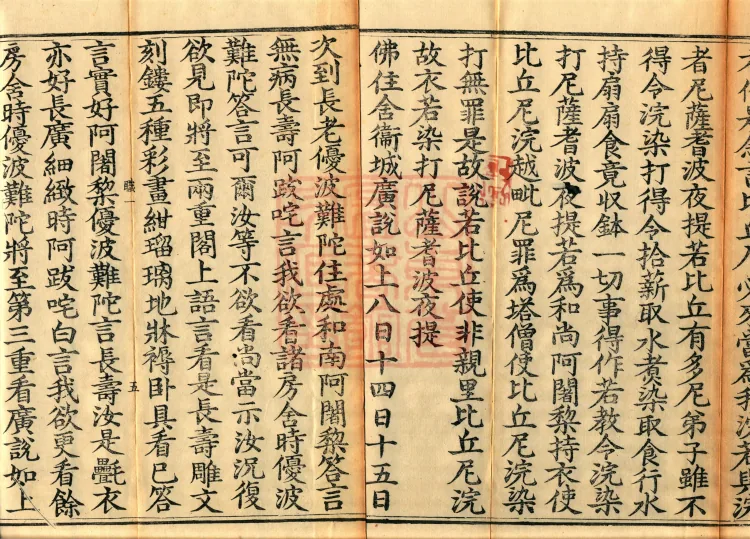 者尼薩耆波夜提若比丘有多尼弟子雖不
得令浣染打得令拾薪取水煮染取食行水
持扇扇食竟收鉢一切事得作若教令浣染
打尼薩耆波夜提若爲和尚阿闍黎持衣使
比丘尼浣越毗尼罪爲塔僧使比丘尼浣染
打無罪是故說若比丘使非親里比丘尼浣
故衣若染打尼薩耆波夜提
佛住舍衞城廣說如上八日十四日十五日
次到長老優波難陀住處和南阿闍黎答言
無病長壽阿跋咤言我欲看諸房舍時優波
難陀答言可爾汝等不欲看尚當示汝況復
欲見即將至兩重閣上語言看是長壽雕文
刻鏤五種彩畫紺瑠璃地牀褥卧具看已答
職一 五
言實好阿闍黎優波難陀言長壽汝是氎衣
亦好長廣細緻時阿跋咤白言我欲更看餘
房舍時優波難陀將至第三重看廣說如上